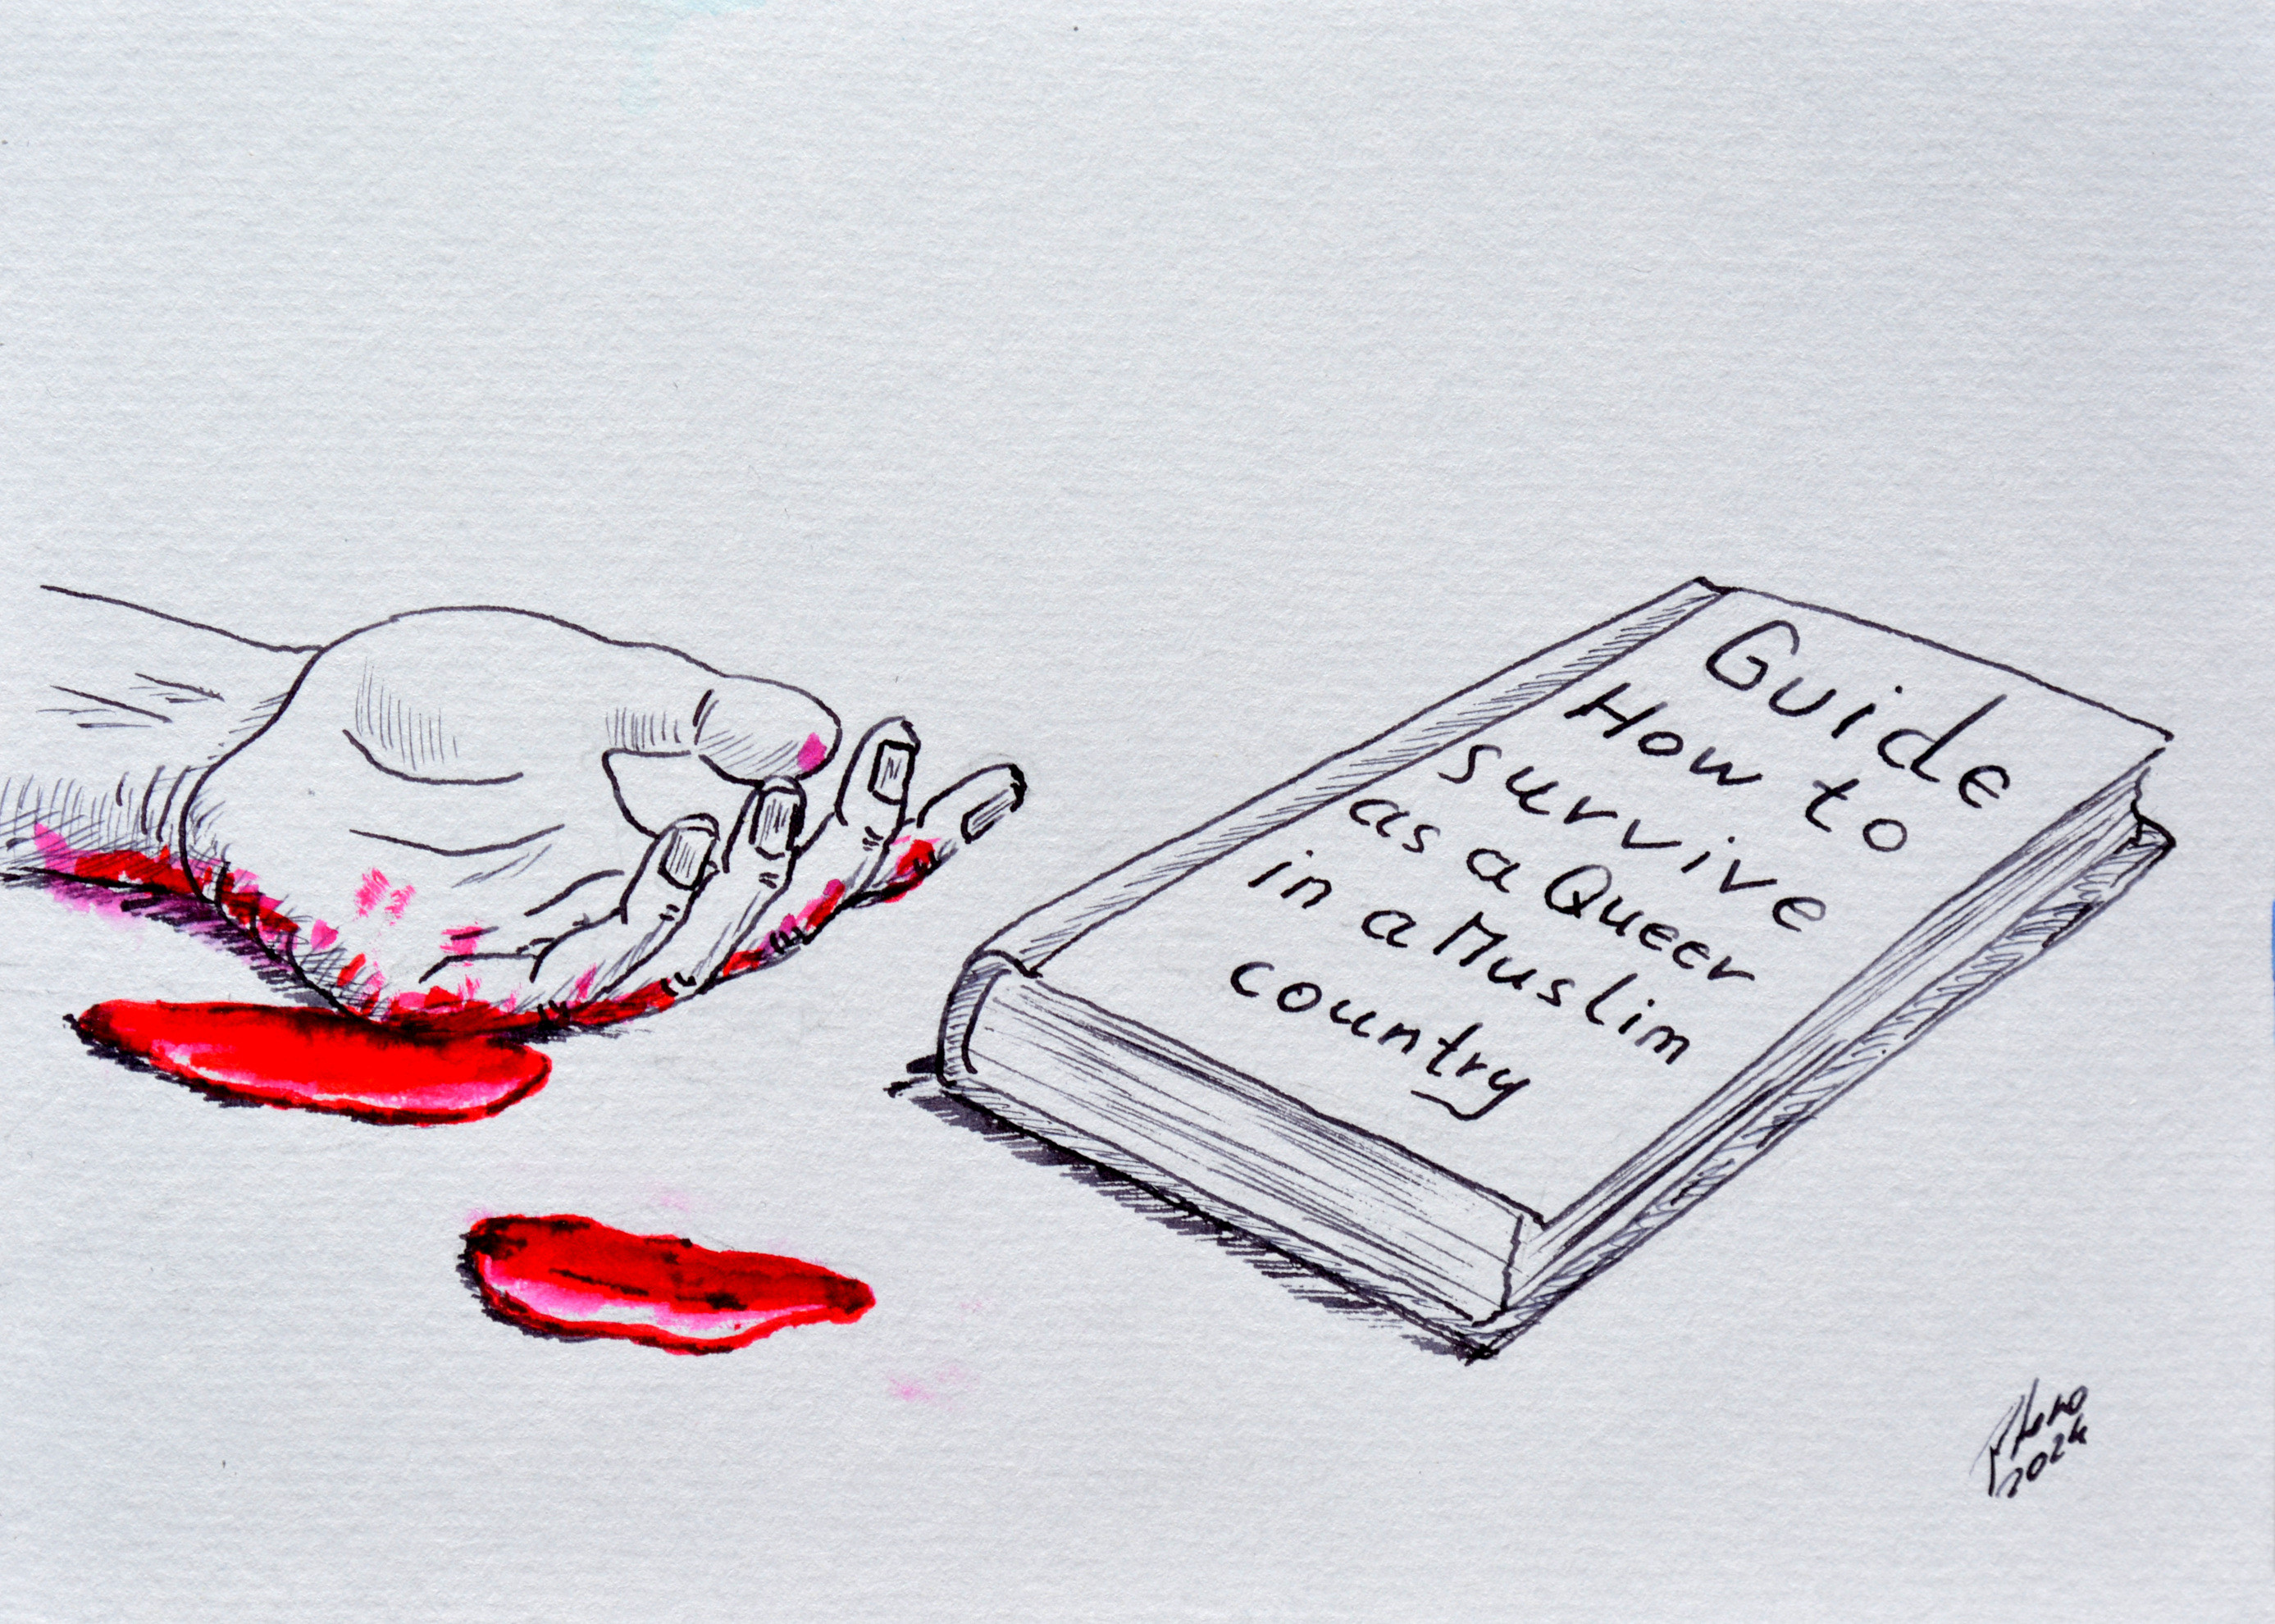 Guide
How to
survive
as a Queer
in a Muslim
country
2024